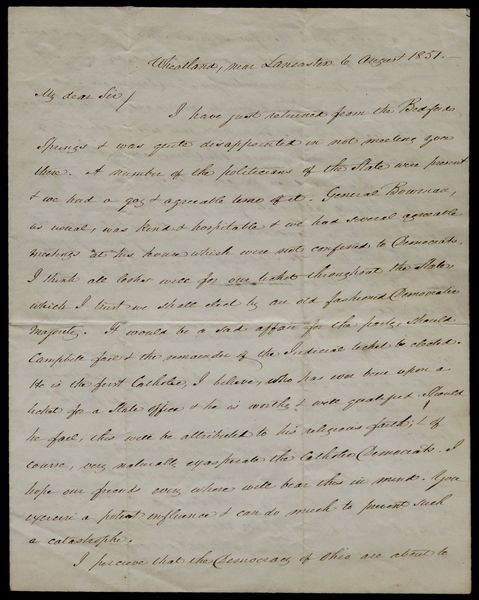 Wheatland, near Lancaster 6 August 1851.
My dear Sir/
I have just returned from the Bedford
Springs & was quite disappointed in not meeting you
there. A number of the politicians of the State were present
& we had a gay & agreeable time of it. General Bowman,
as usual, was kind & hospitable & we had several agreeable
meetings at his house which were not confined to Democrats.
I think all looks well for our ticket throughout the State,
which I trust we shall elect by an old fashioned Democratic
majority. It would be a sad affair for the party, should
Campbell fail & the remainder of the Judicial ticket be elected.
He is the first Catholic, I believe, who has ever been upon a
ticket for a State office & he is worthy & well qualified. Should
he fail, this will be attributed to his religious faith; & of
course, very naturally exasperate the Catholic Democrats. I
hope our friends every where will bear this in mind. You
exercise a potent influence & can do much to prevent such
a catastrophe.
I perceive that the Democracy of Ohio are about to